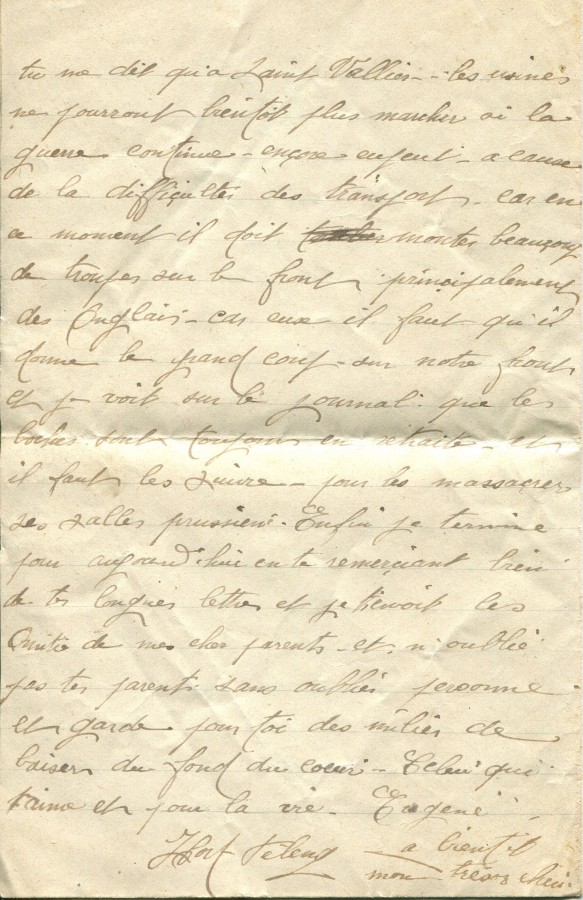 tu me dit qu'a Saint Vallier - les usines
ne pourront bientot plus marcher si la
guerre continue - encore - a cause
de la difficultés des transport - car en
ce moment il doit monter beaucoup
de troupes sur le front principalement
des Anglais - car eux il faut qu'il
donne le grand coup - sur notre front
et je voit sur le journal que les
boches sont toujours en retraite - et
il faut les suivre - pour les massacrer
ses salles prussien. Enfin je termine
pour aujourd'hui en te remerciant bien
de tes longues lettres et je
Amitié de mes cher parents - et n'oublie
pas tes parents sans oublier personne
et garde pour toi des milier de
baiser du fond du coeur - Celui qui
t'aime et pour la vie - Eugène
a bientot
mon trésor cheri